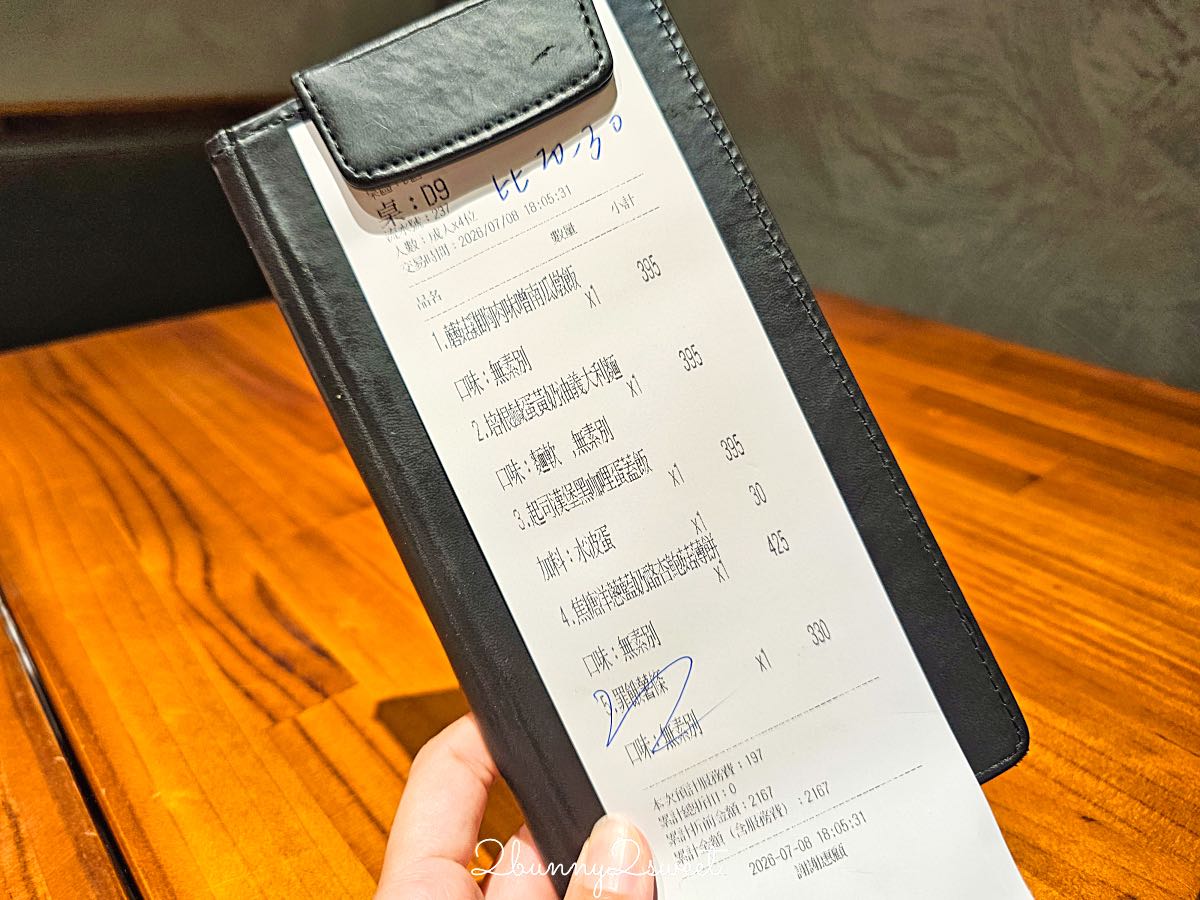 比 20、30
桌：D9
237
人數：成人x4位
交易時間：2026/07/08 18:05:31
品名 數量 小計
1.蘑菇雞胸肉味噌南瓜燉飯
x1 395
口味：無素別
2.培根鹹蛋黃奶油義大利麵
x1 395
口味：麵軟 ,無素別
3.起司漢堡黑咖哩蛋蓋飯
x1 395
加料：水波蛋
x1 30
4.焦糖洋蔥藍奶酪杏鮑菇薄餅
x1 425
口味：無素別
5.罪餓薯條
x1 330
口味：無素別
本次預計服務費：197
累計總折扣：0
累計折前金額：2167
累計金額（含服務費）：2167
2026-07-08 18:05:31
謝謝惠顧
2bunny2sweet